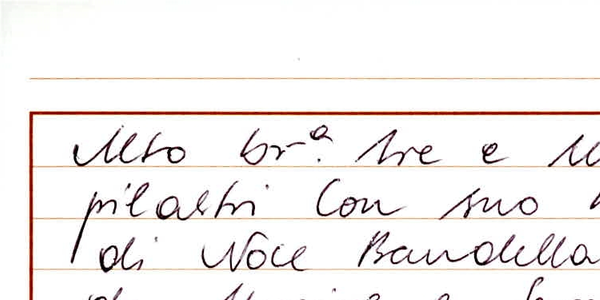 Alto br.ª tre e
pilastri Con suo
di Noce Bandella